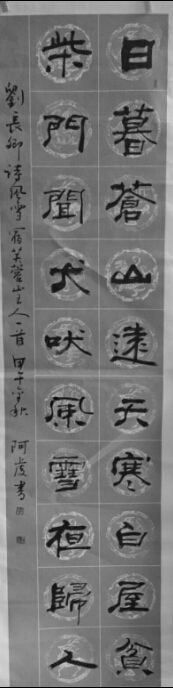 日暮蒼山遠天寒白屋貧
柴門聞犬吠風雪夜歸人
劉長卿詩風雪宿芙蓉山主人一首 甲午年秋 阿彦書